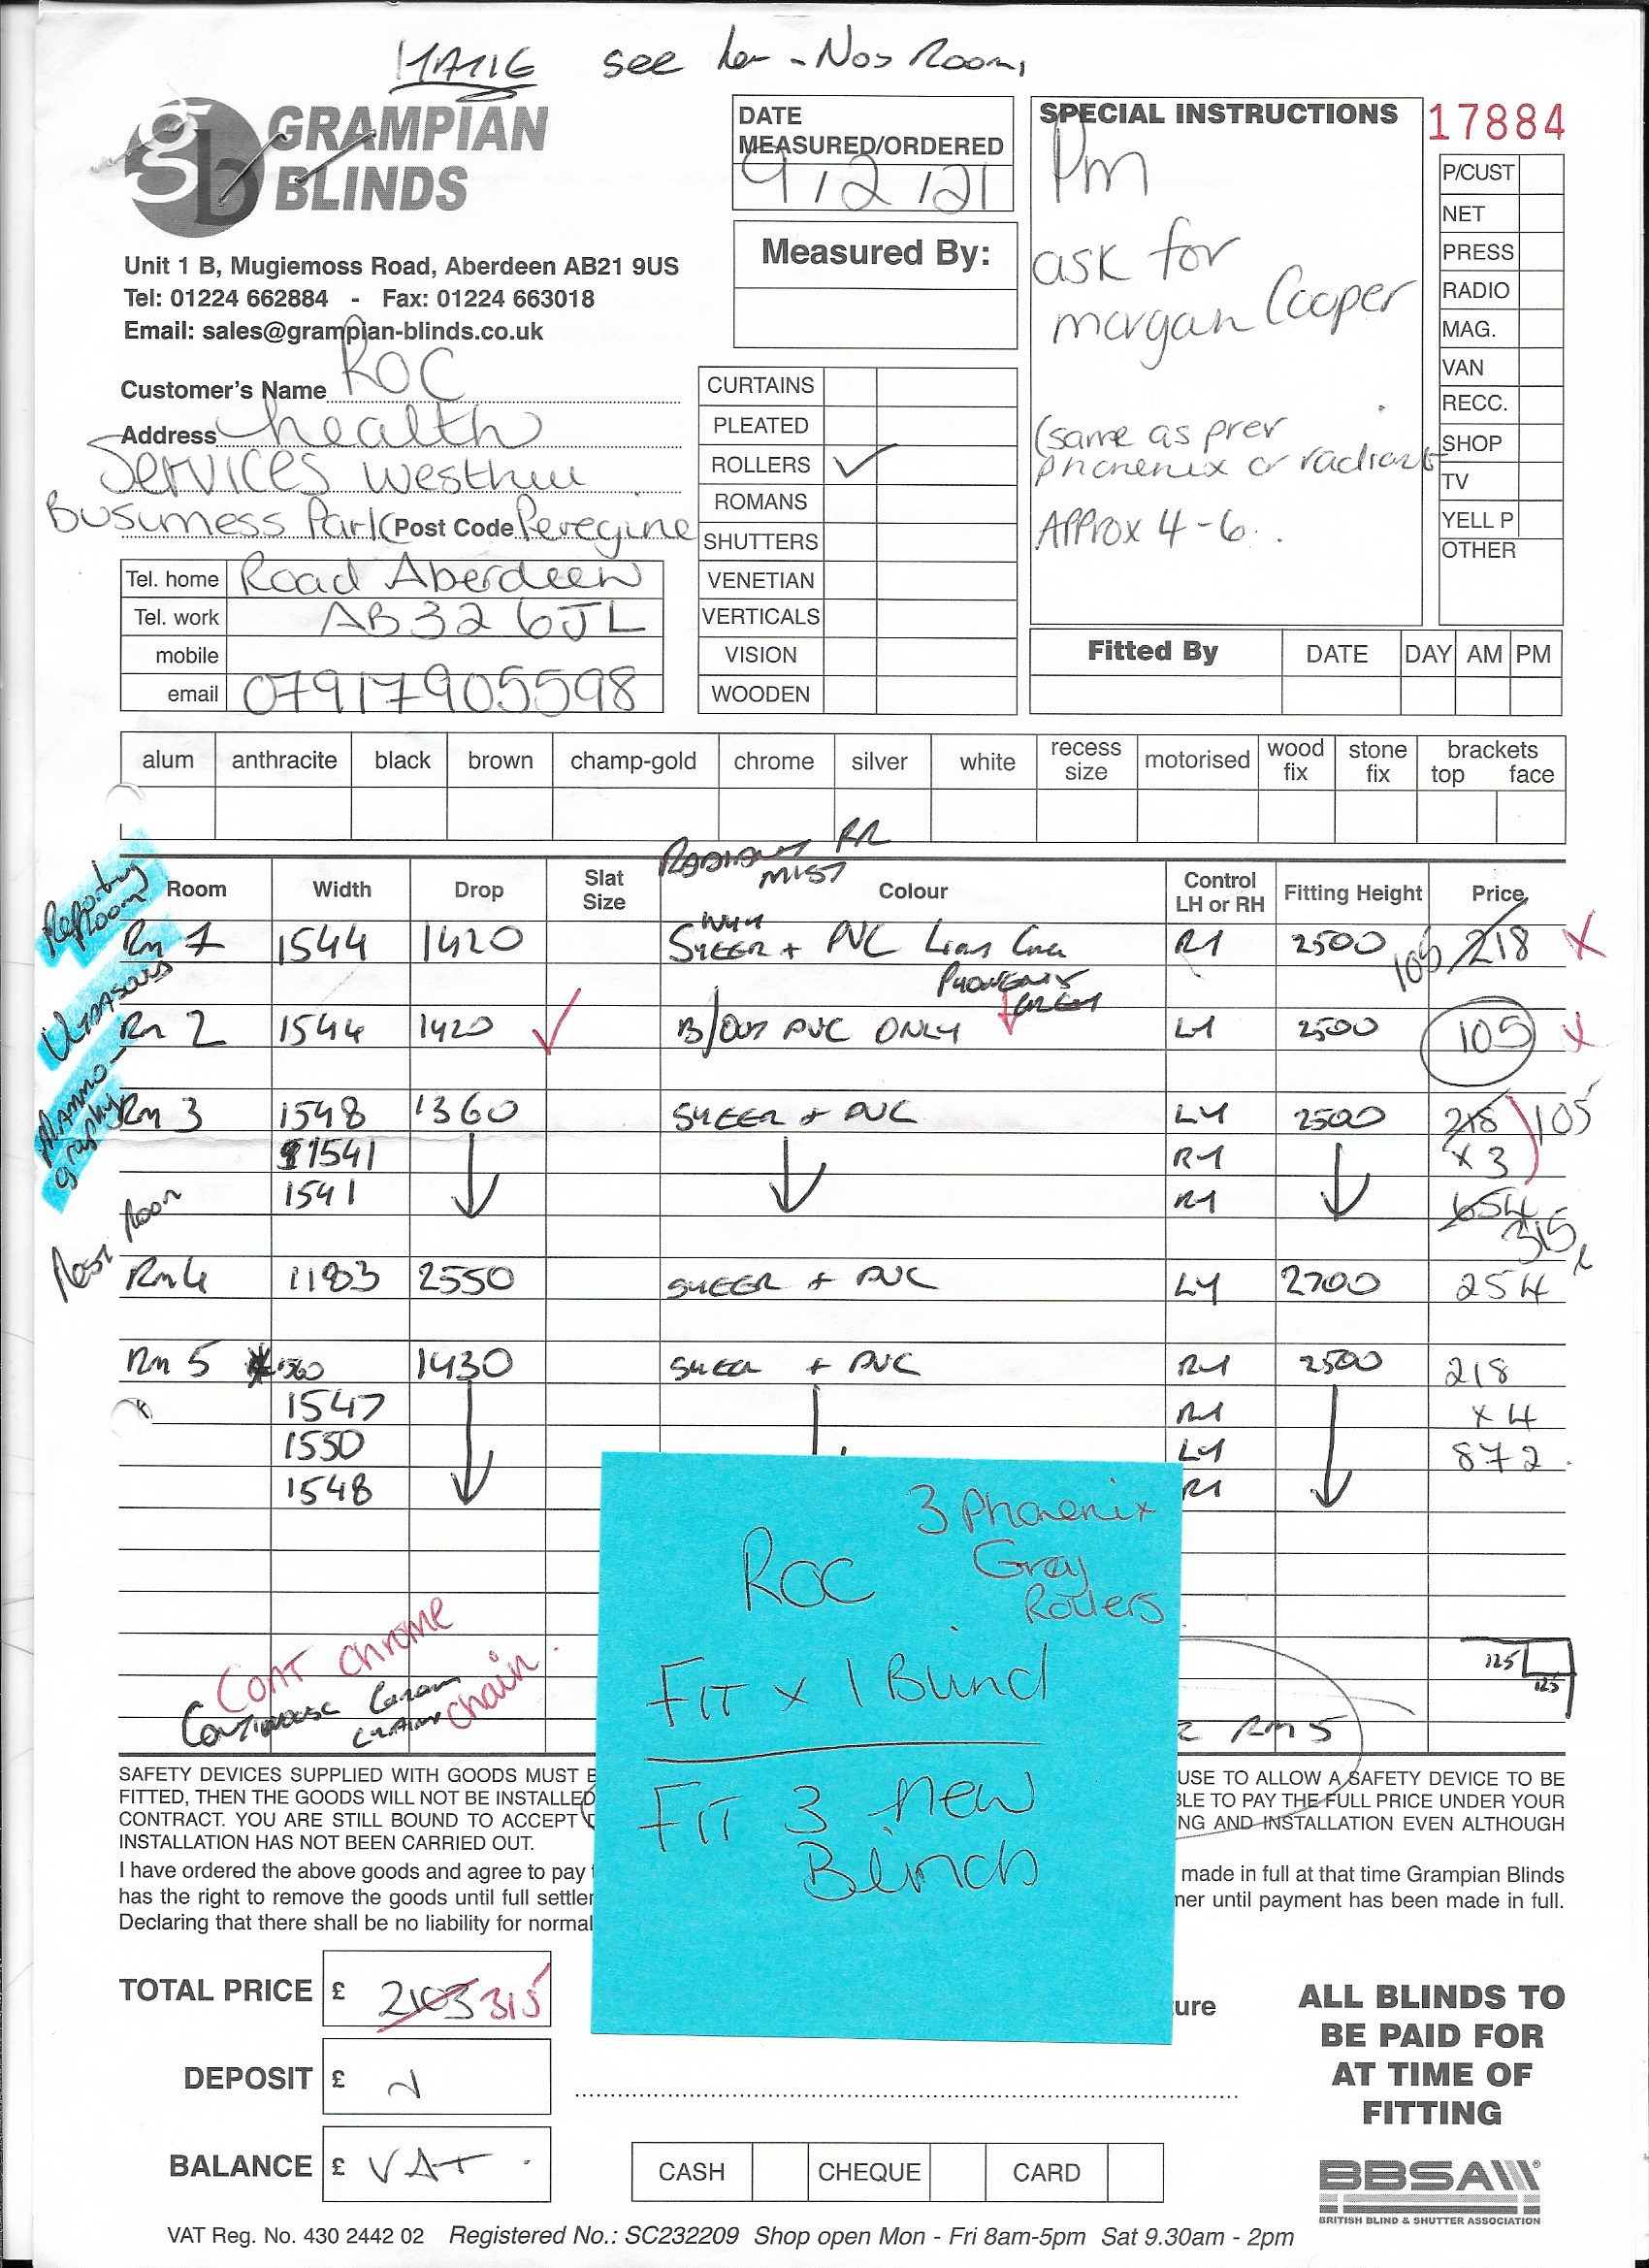 see her - Nos Room,
GRAMPIAN
BLINDS
Unit 1 B, Mugiemoss Road, Aberdeen AB21 9US
Tel: 01224 662884 - Fax: 01224 663018
Email: sales@grampian-blinds.co.uk
DATE
MEASURED/ORDERED
9/2/21
Measured By:
SPECIAL INSTRUCTIONS
Pm
ask for
morgan Cooper
(same as prev
phoenix or radiant
APPROX 4-6.
17884
P/CUST
NET
PRESS
RADIO
MAG.
VAN
RECC.
SHOP
TV
YELL P
OTHER
Customer's Name ROC
Address health
Services Westhill
Business Park Post Code Peregine
Tel. home Road Aberdeen
Tel. work AB32 6JL
mobile
email 07917905598
CURTAINS
PLEATED
ROLLERS ✓
ROMANS
SHUTTERS
VENETIAN
VERTICALS
VISION
WOODEN
Fitted By DATE DAY AM PM
alum anthracite black brown champ-gold chrome silver white recess size motorised wood fix stone fix brackets top face
RADIANT RR
MIST
Room Width Drop Slat Size Colour Control LH or RH Fitting Height Price
Reporting Room
Rm 1 1544 1420 SHEER + PVC RH 2500 105 218 X
PHOENIX
GREY
Ultrasound
Rm 2 1544 1420 ✓ B/OUT PVC ONLY LH 2500 105 X
Mammo-graphy
Rm 3 1548 1360 SHEER + PVC LH 2500 218 105
1541 RH x 3
1541 RH 654
315
Rest Room
Rm 4 1183 2550 SHEER + PVC LH 2700 254
Rm 5 1560 1430 SHEER + PVC RH 2500 218
1547 RH x 4
1550 LH 872
1548 RH
3 Phoenix
Grey
Rollers
ROC
FIT x 1 Blind
FIT 3 new
Blinds
CONT chrome
chain.
CONTINUOUS CHROME
CHAIN
125
125
RM 5
SAFETY DEVICES SUPPLIED WITH GOODS MUST B USE TO ALLOW A SAFETY DEVICE TO BE
FITTED, THEN THE GOODS WILL NOT BE INSTALLED BLE TO PAY THE FULL PRICE UNDER YOUR
CONTRACT. YOU ARE STILL BOUND TO ACCEPT NG AND INSTALLATION EVEN ALTHOUGH
INSTALLATION HAS NOT BEEN CARRIED OUT.
I have ordered the above goods and agree to pay made in full at that time Grampian Blinds
has the right to remove the goods until full settler ner until payment has been made in full.
Declaring that there shall be no liability for normal
TOTAL PRICE £ 2103 315
ure
DEPOSIT £
BALANCE £ VAT
CASH CHEQUE CARD
ALL BLINDS TO
BE PAID FOR
AT TIME OF
FITTING
BBSA
BRITISH BLIND & SHUTTER ASSOCIATION
VAT Reg. No. 430 2442 02 Registered No.: SC232209 Shop open Mon - Fri 8am-5pm Sat 9.30am - 2pm